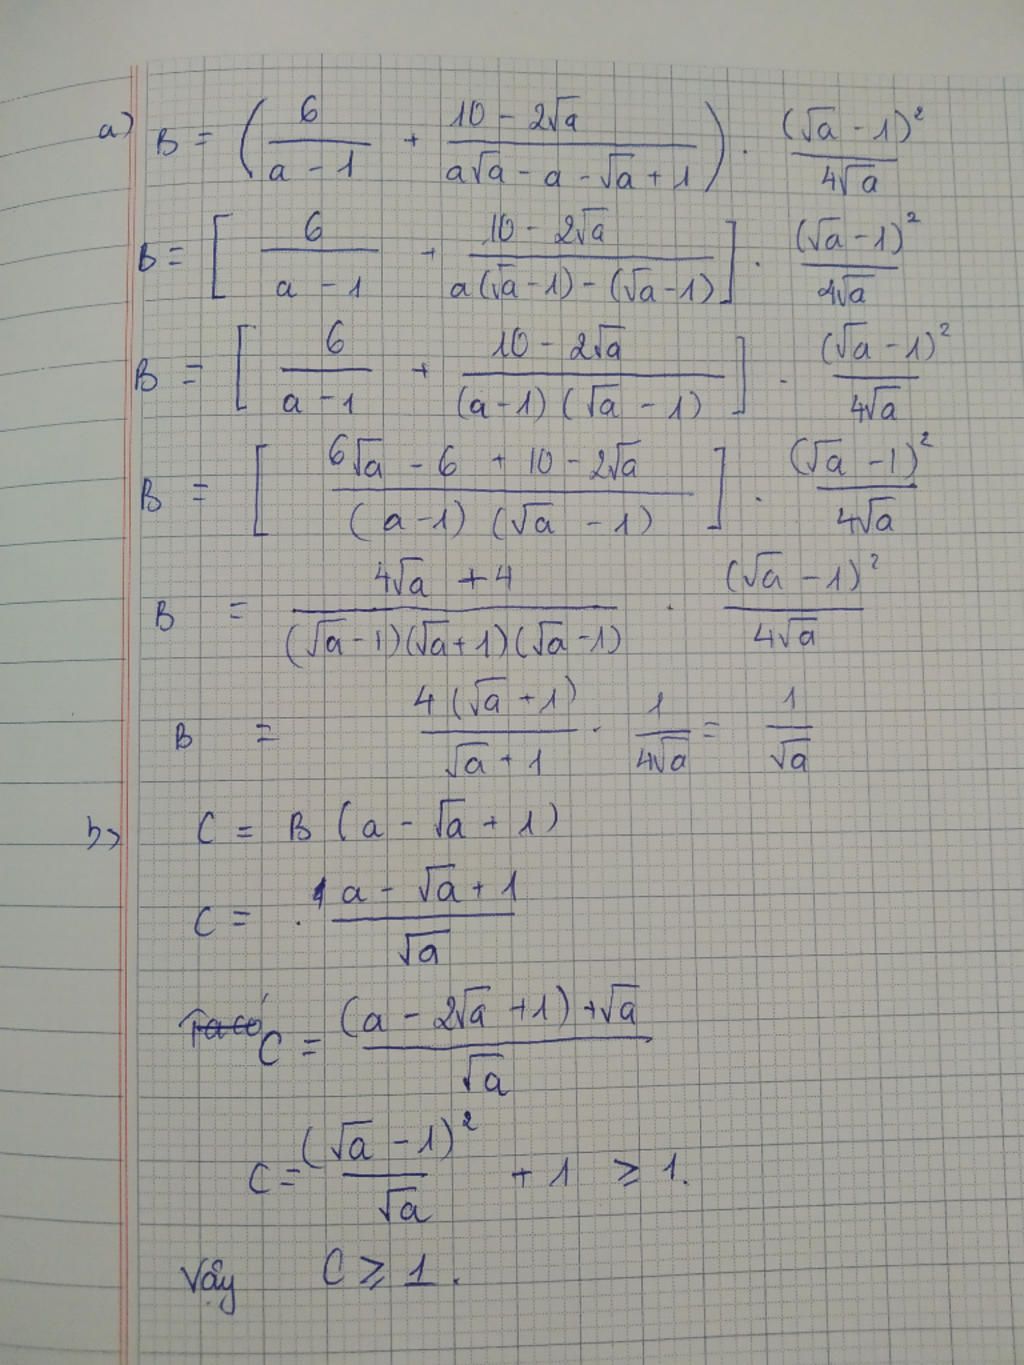 a) B = ( 6/(a - 1) + (10 - 2√a)/(a√a - a - √a + 1) ) . (√a - 1)²/(4√a)
B = [ 6/(a - 1) + (10 - 2√a)/(a(√a - 1) - (√a - 1)) ] . (√a - 1)²/(4√a)
B = [ 6/(a - 1) + (10 - 2√a)/((a - 1)(√a - 1)) ] . (√a - 1)²/(4√a)
B = [ (6√a - 6 + 10 - 2√a)/((a - 1)(√a - 1)) ] . (√a - 1)²/(4√a)
B = (4√a + 4)/((√a - 1)(√a + 1)(√a - 1)) . (√a - 1)²/(4√a)
B = 4(√a + 1)/(√a + 1) . 1/(4√a) = 1/√a
b) C = B (a - √a + 1)
C = (a - √a + 1)/√a
C = ((a - 2√a + 1) + √a)/√a
C = (√a - 1)²/√a + 1 ≥ 1.
Vậy C ≥ 1.